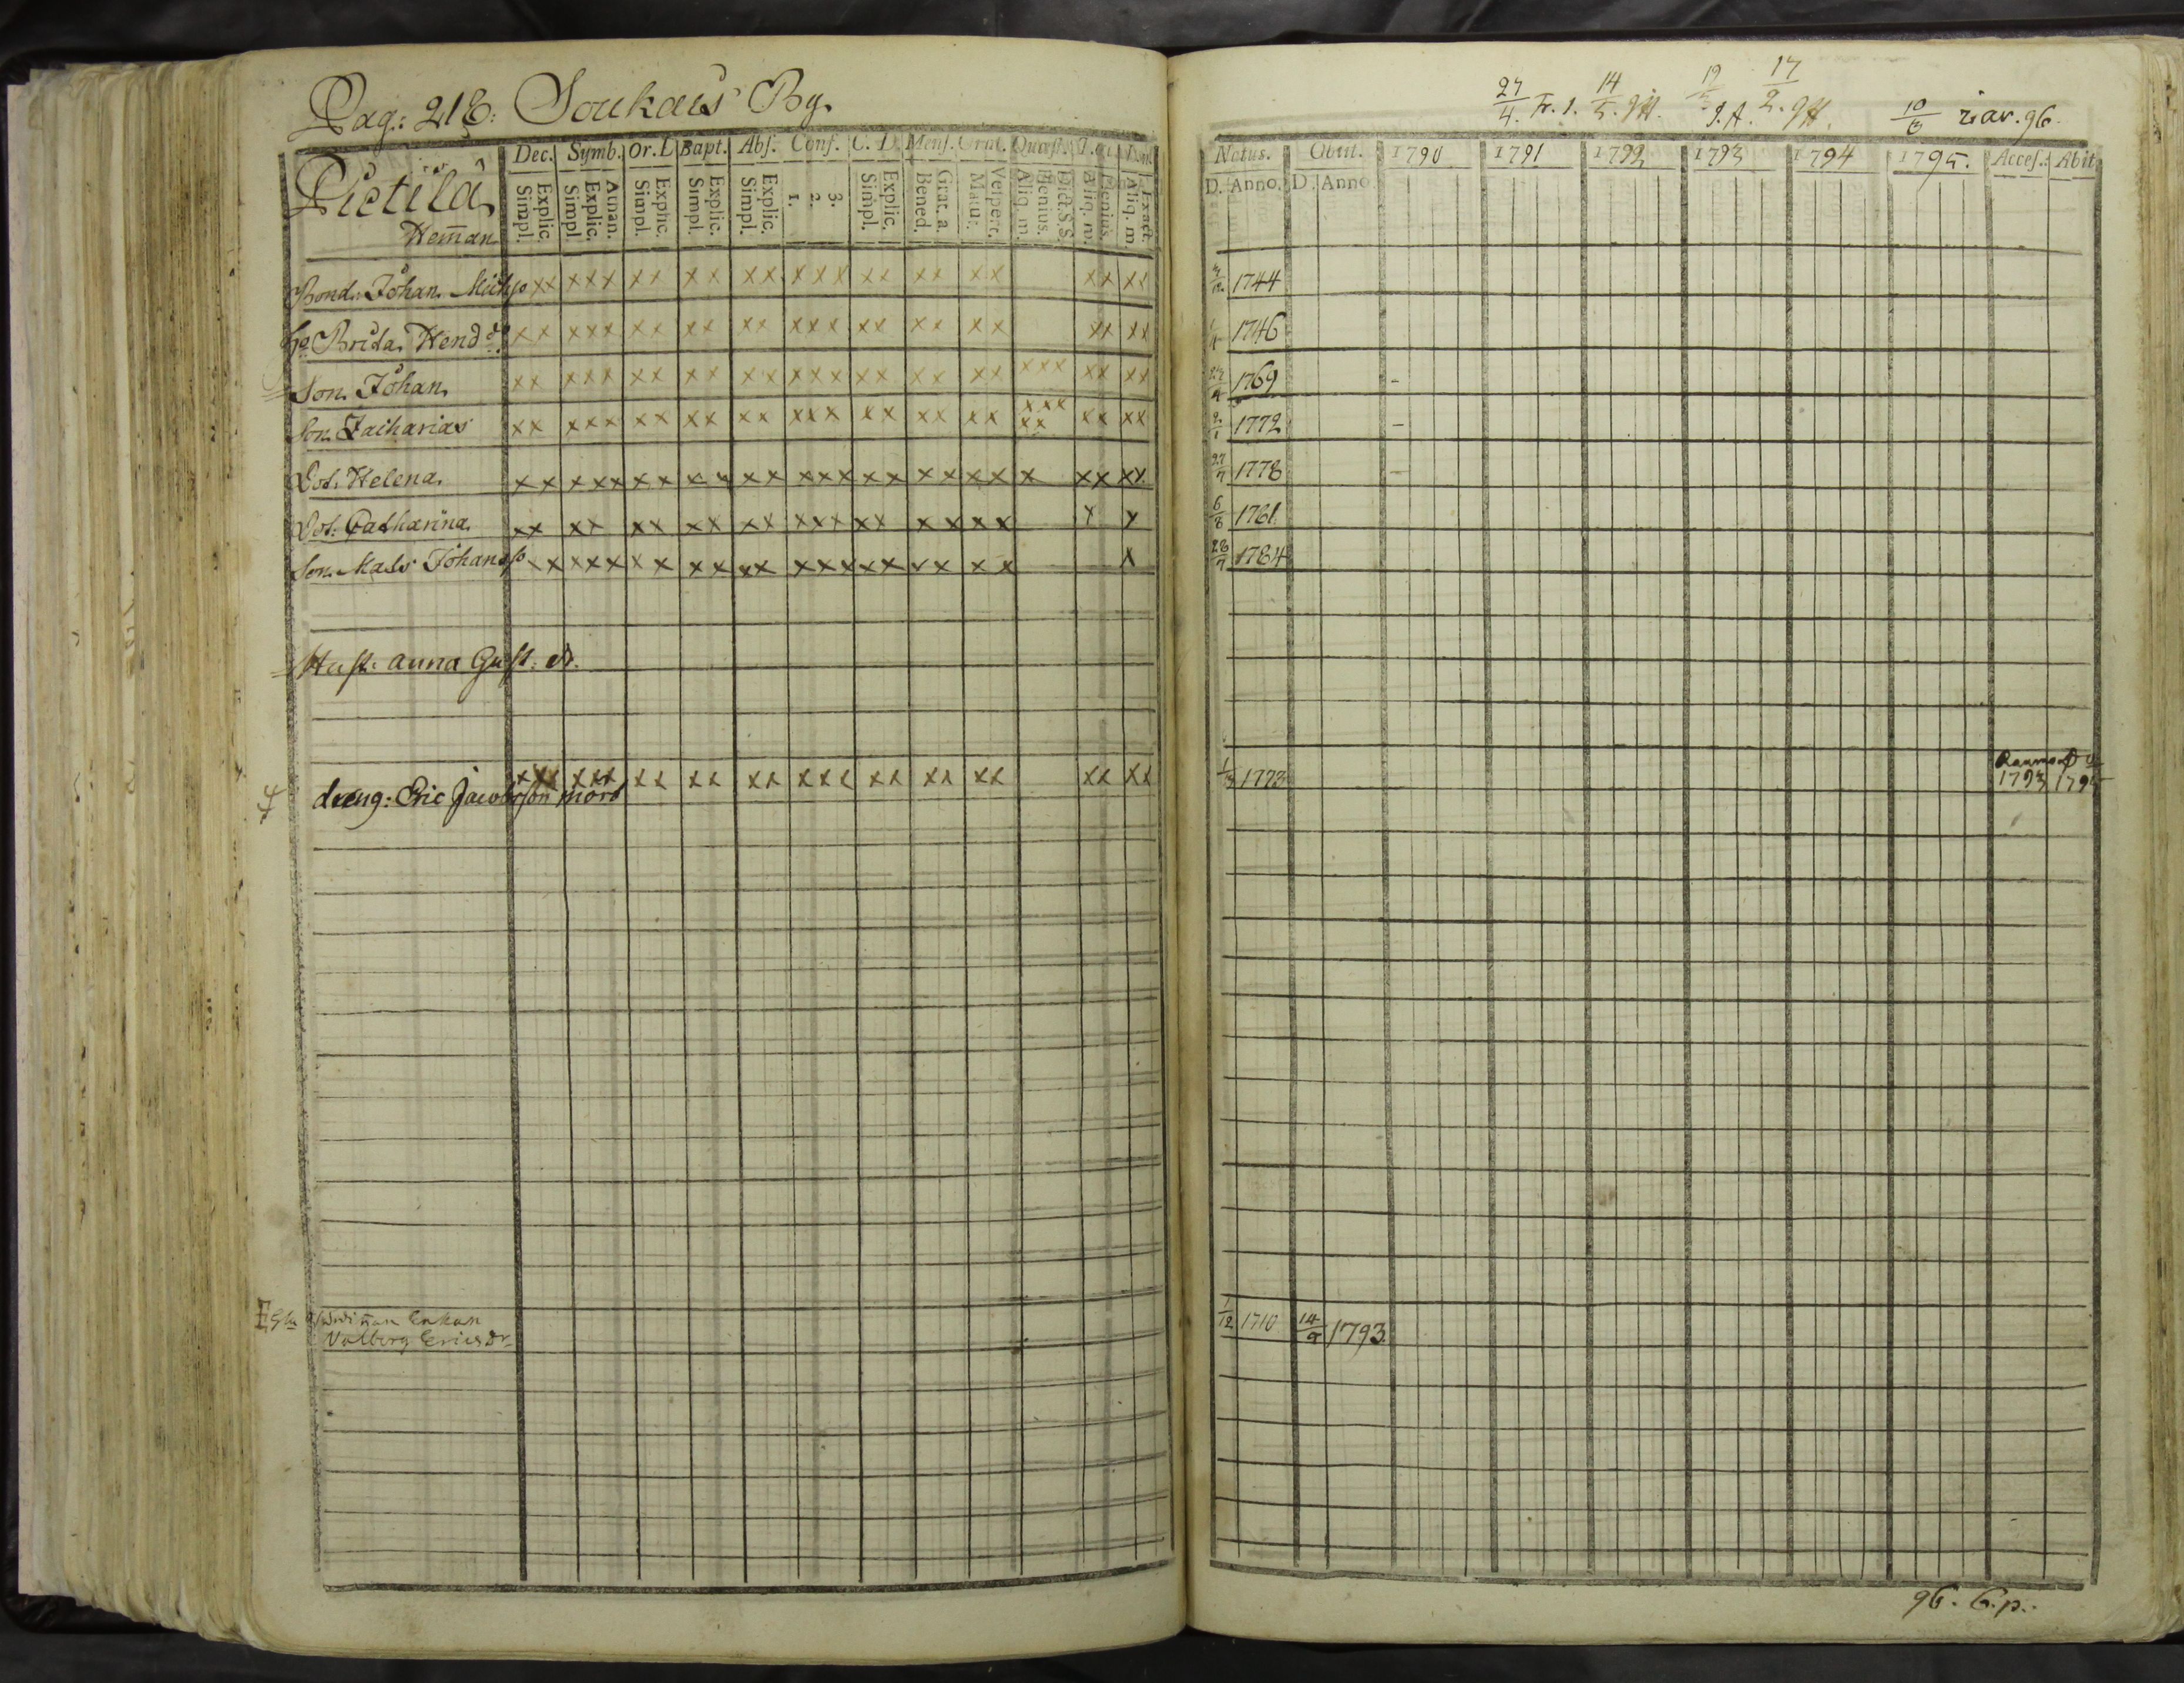 Pag: 218. Soukais By.
Pietilä
Hem̄an
Dec. Symb. Or. D Bapt. Abs. Conf. C. D. Mens. Orat. Quæst.
Simpl. Explic. Simpl. Explic. Athan. Simpl. Explic. Simpl. Explic. Simpl. Explic. 1. 2. 3. Simpl. Explic. Bened. Grat. a. Matut. Vespert. Aliq. m. Plenius. Dict. S.S. Aliq. m. Plenius. Aliq. m. Exact.
Bond. Johan Michs xx xxx xx xx xx xxx xx xx xx xx xx
Brita Hend dr xx xxx xx xx xx xxx xx xx xx xx xx
Son. Johan xx xxx xx xx xx xxx xx xx xx xxx xx xx
Son. Zacharias xx xxx xx xx xx xxx xx xx xx xxx xx xx xx
Dot. Helena xx xxx xx xx xx xxx xx xx xx x xx xx
Dot. Catharina xx xx xx xx xx xxx xx xx xx x x
Son. Mats Johans xx xxx xx xx xx xxx xx xx xx x
Hust: anna Gust: dr.
dreng: Eric Jacobsson xxx xxx xx xx xx xxx xx xx xx xx xx
Enkan
Valborg Ericsdr
27/4. Fr. 1. 14/5. 17/2. 10/3 96.
Natus. Obiit. 1790 1791 1792 1793 1794 1795. Acces. Abit
D. Anno. D. Anno
1744
1746
1769
1772
27/7 1778
6/8 1781
28/7 1784
1/3 1773 1793 1794
1/12 1710 14/9 1793
96. 6.p.